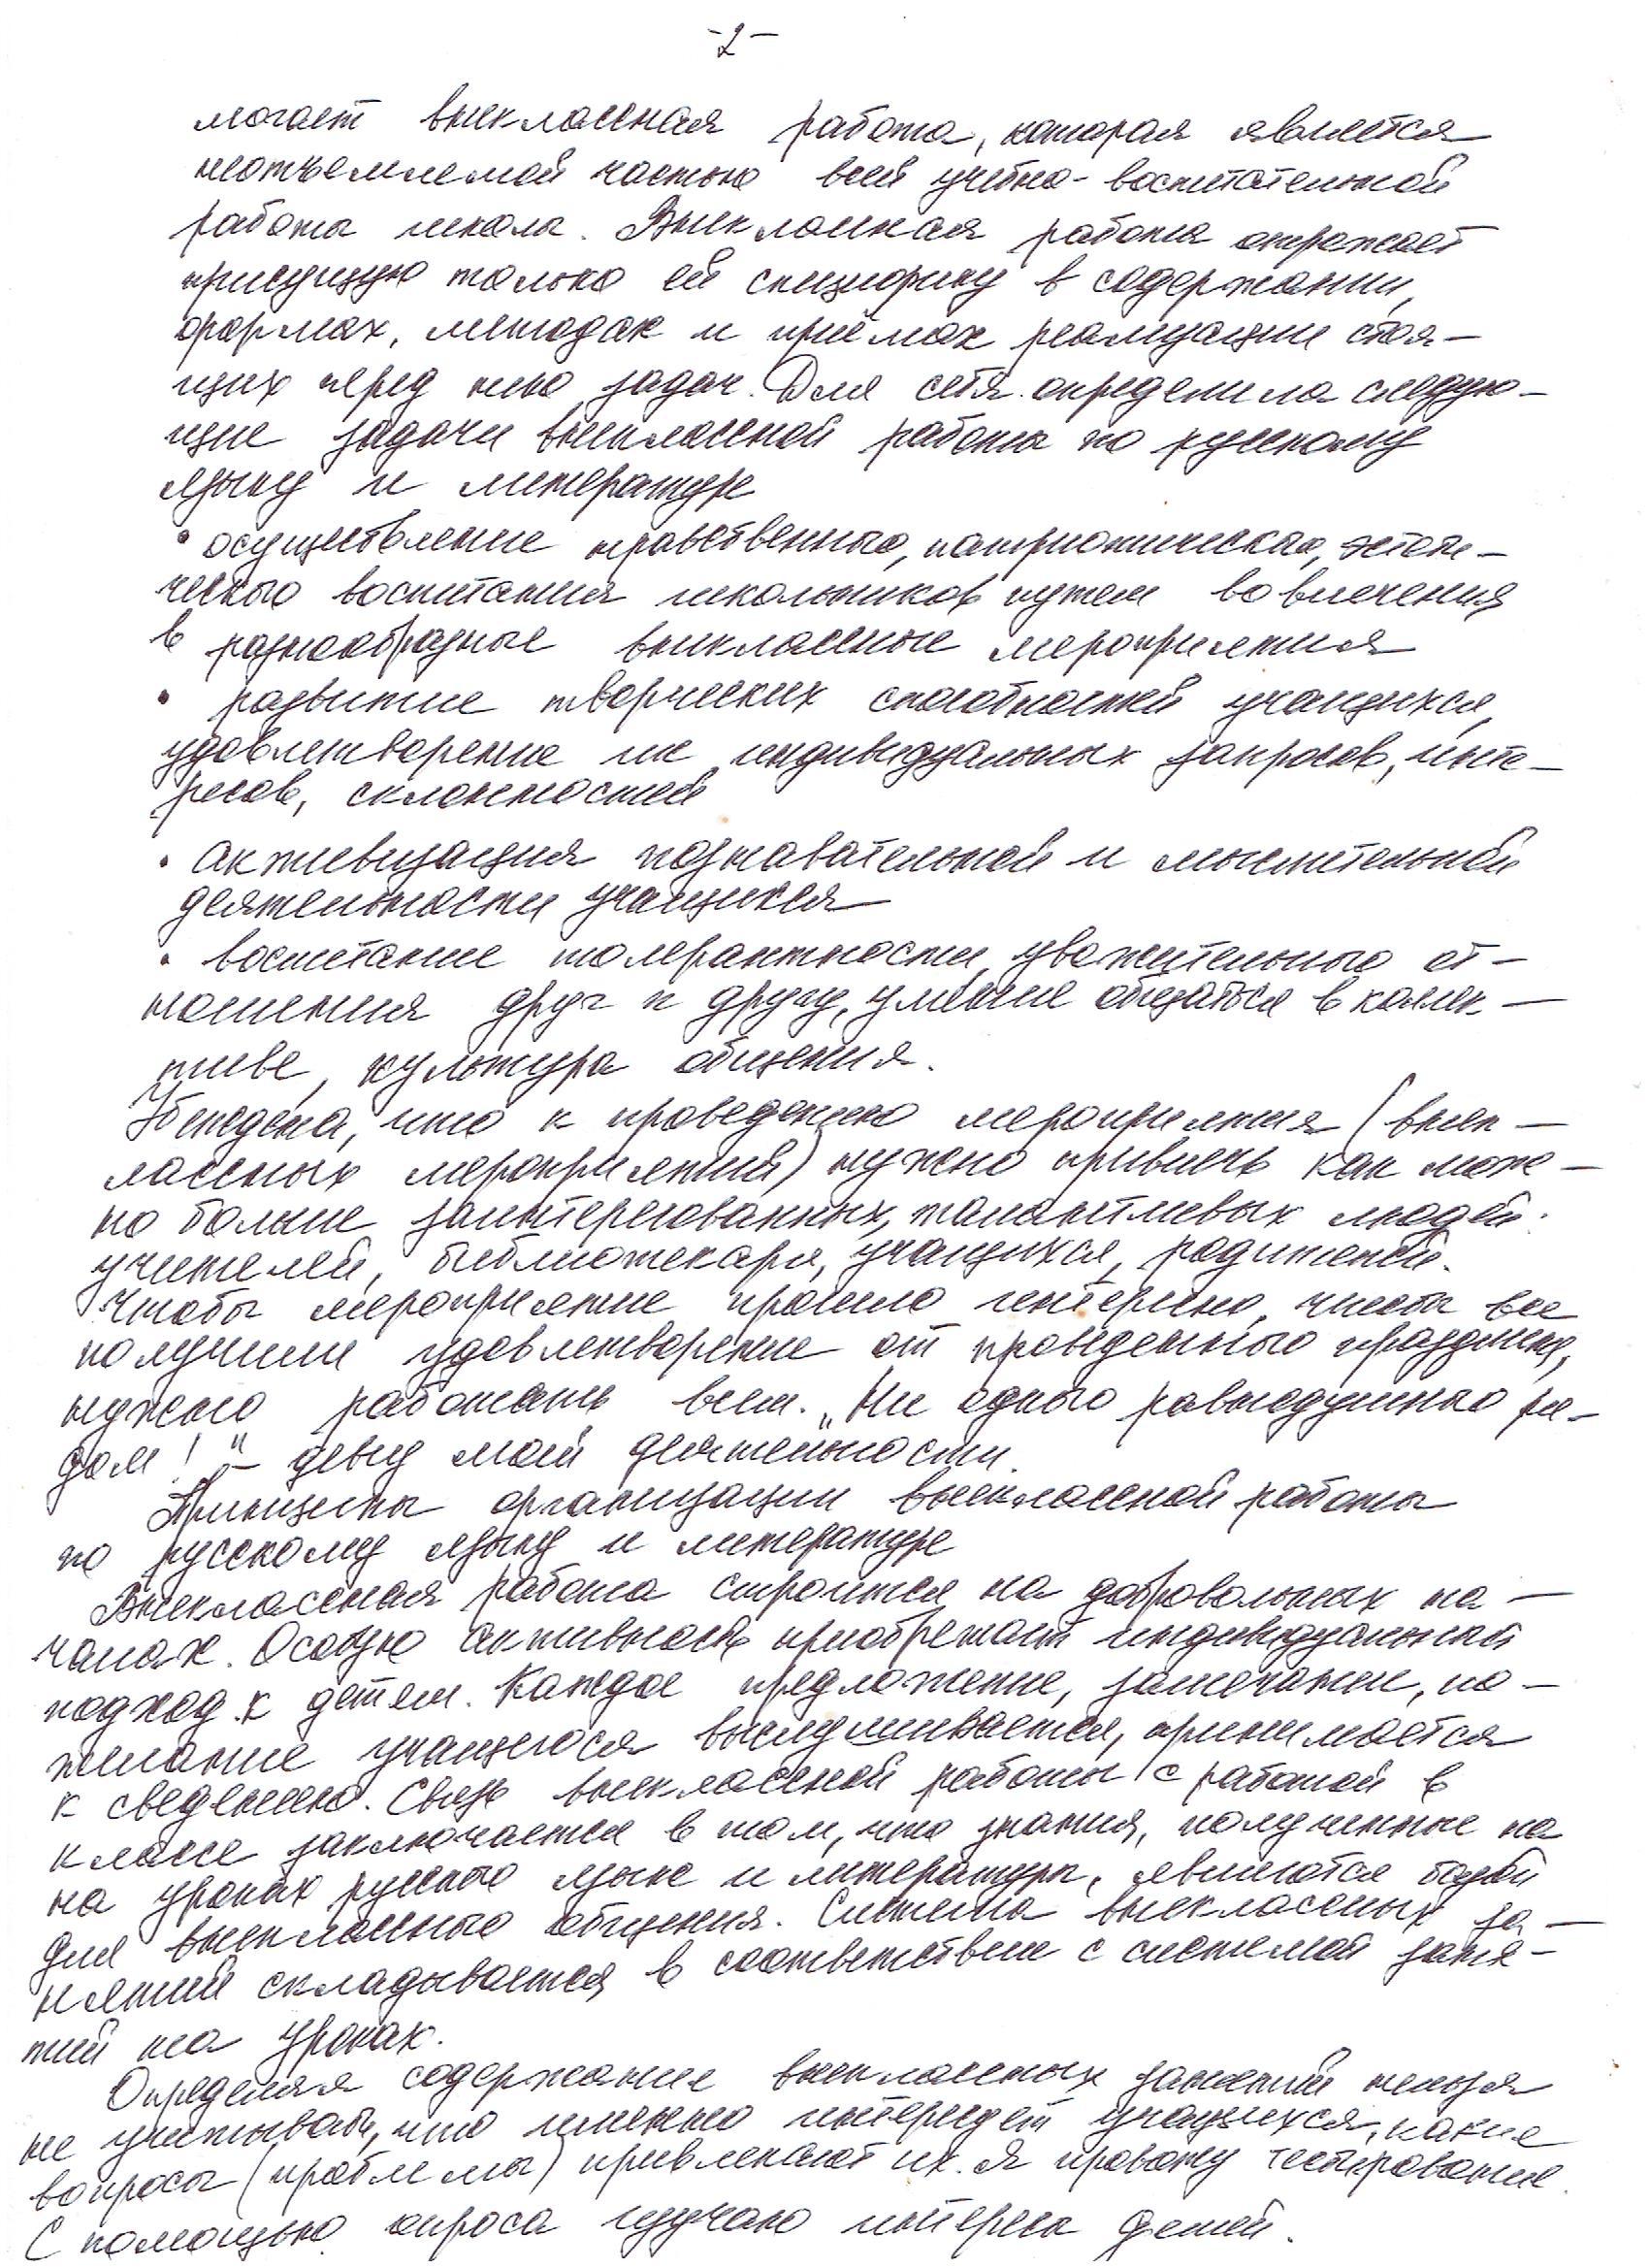 -2-
могает внеклассная работа, которая является
неотъемлемой частью всей учебно-воспитательной
работы школы. Внеклассная работа отражает
присущую только ей специфику в содержании,
формах, методах и приёмах реализации стоя-
щих перед нею задач. Для себя определила следую-
щие задачи внеклассной работы по русскому
языку и литературе
• осуществление нравственного, патриотического, эстети-
ческого воспитания школьников путем вовлечения
в разнообразные внеклассные мероприятия
• развитие творческих способностей учащихся,
удовлетворение их индивидуальных запросов, инте-
ресов, склонностей
• активизация познавательной и мыслительной
деятельности учащихся
• воспитание толерантности, уважительного от-
ношения друг к другу, умение общаться в коллек-
тиве, культура общения.
Убеждена, что к проведению мероприятия (внек-
лассных мероприятий) нужно привлечь как мож-
но больше заинтересованных, талантливых людей:
учителей, библиотекаря, учащихся, родителей.
Чтобы мероприятие прошло интересно, чтобы все
получили удовлетворение от проведенного праздника,
нужно работать всем. „Ни одного равнодушного ря-
дом!" - девиз моей деятельности.
Принципы организации внеклассной работы
по русскому языку и литературе
Внеклассная работа строится на добровольных на-
чалах. Особую активность приобретает индивидуальный
подход к детям. Каждое предложение, замечание, по-
желание учащегося выслушивается, принимается
к сведению. Связь внеклассной работы с работой в
классе заключается в том, что знания, полученные на
на уроках русского языка и литературы, являются базой
для внеклассного общения. Система внеклассных за-
нятий складывается в соответствие с системой заня-
тий на уроках.
Определяя содержание внеклассных занятий нельзя
не учитывать, что именно интересует учащихся, какие
вопросы (проблемы) привлекают их. Я провожу тестирование.
С помощью опроса изучаю интересы детей.